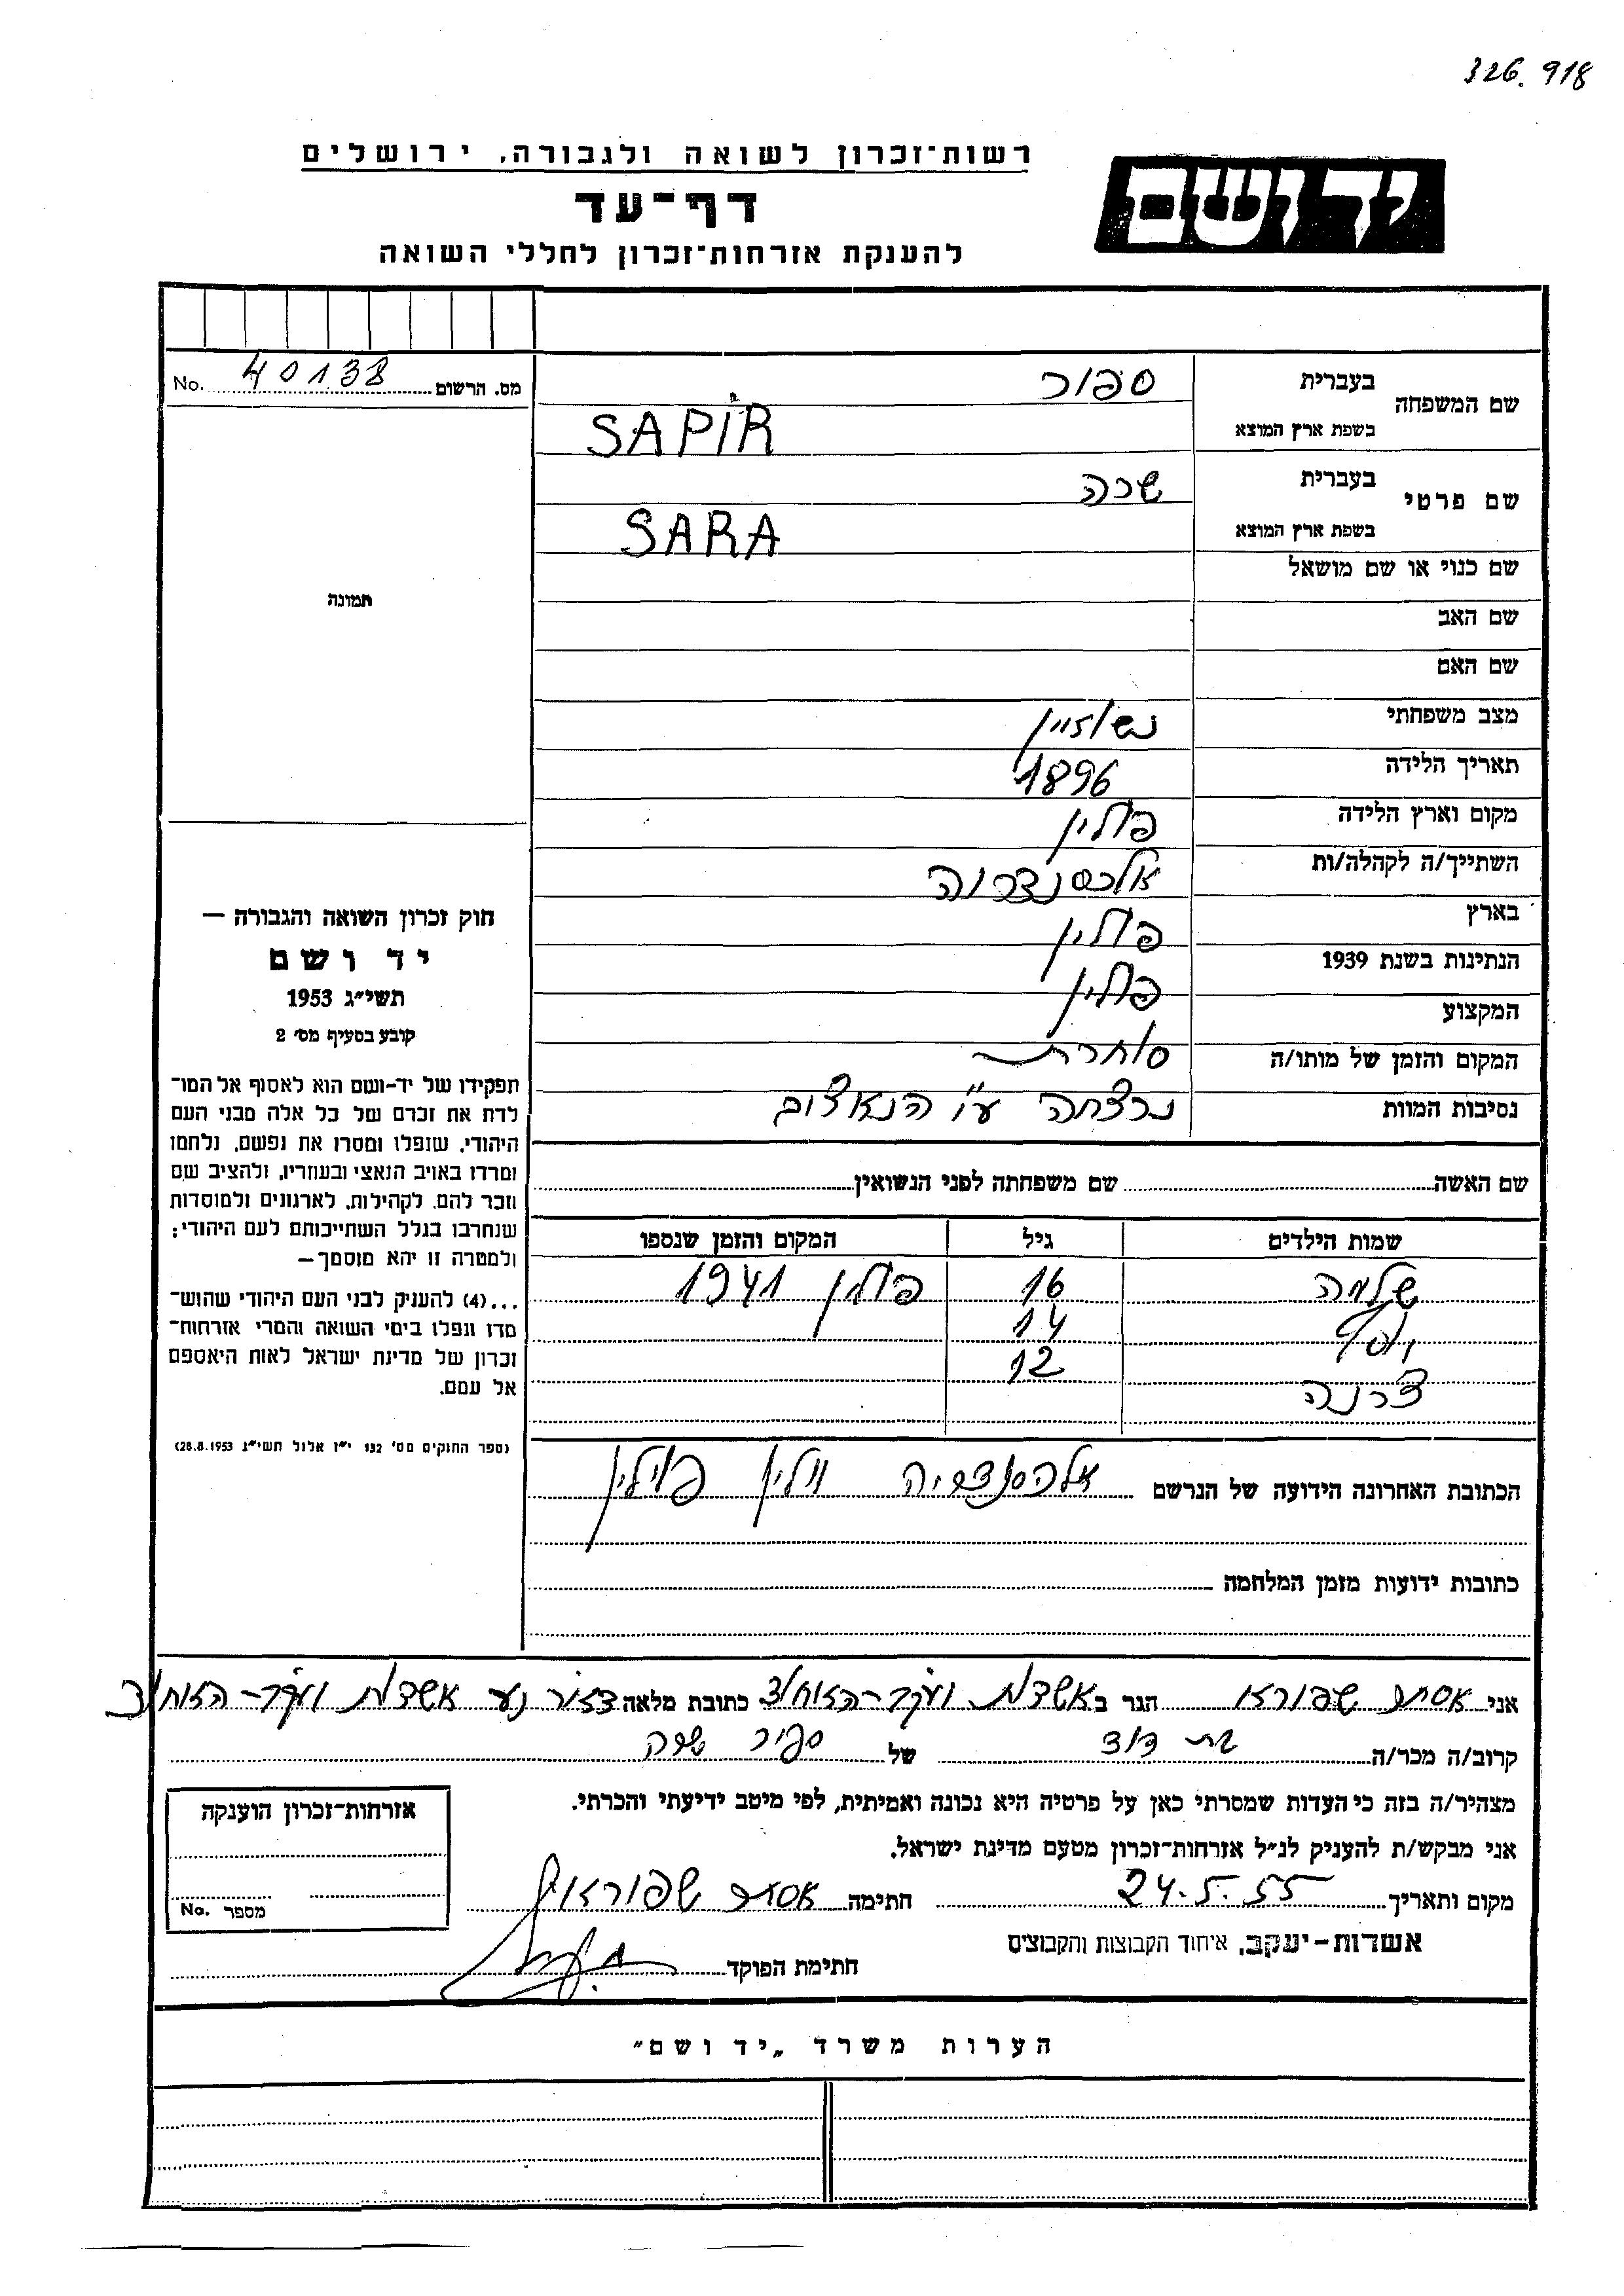 326.918
רשות־זכרון לשואה ולגבורה, ירושלים
ידושם
דף־עד
להענקת אזרחות־זכרון לחללי השואה
שם המשפחה בעברית ספיר
בשפת ארץ המוצא SAPIR
מס. הרשום 40138 No.
שם פרטי בעברית שרה
בשפת ארץ המוצא SARA
תמונה
שם כנוי או שם מושאל
שם האב
שם האם
מצב משפחתי
תאריך הלידה 1896
מקום וארץ הלידה פולין
השתייך/ה לקהלה/ות
בארץ פולין
הנתינות בשנת 1939 פולין
המקצוע סוחרת
המקום והזמן של מותו/ה
נסיבות המוות נרצחה ע"י הנאצים
חוק זכרון השואה והגבורה —
יד ושם
תשי״ג 1953
קובע בסעיף מס׳ 2
תפקידו של יד-ושם הוא לאסוף אל המו־
לדת את זכרם של כל אלה מבני העם
היהודי, שנפלו ומסרו את נפשם, נלחמו
ומרדו באויב הנאצי ובעוזריו, ולהציב שם
וזכר להם, לקהילות, לארגונים ולמוסדות
שנחרבו בגלל השתייכותם לעם היהודי;
ולמטרה זו יהא מוסמך—
...(4) להעניק לבני העם היהודי שהוש־
מדו ונפלו בימי השואה והמרי אזרחות־
זכרון של מדינת ישראל לאות היאספם
אל עמם.
(ספר החוקים מס׳ 132 י״ז אלול תשי״ג 28.8.1953)
שם האשה שם משפחתה לפני הנשואין
שמות הילדים גיל המקום והזמן שנספו
שלמה 16 פולין 1941
יוסף 14
12
הכתובת האחרונה הידועה של הנרשם אלכסנדריה וולין פולין
כתובות ידועות מזמן המלחמה
אני אסתר הגר ב אשדות יעקב כתובת מלאה אשדות יעקב
קרוב/ה מכר/ה בת דוד של ספיר שרה
מצהיר/ה בזה כי העדות שמסרתי כאן על פרטיה היא נכונה ואמיתית, לפי מיטב ידיעתי והכרתי.
אני מבקש/ת להעניק לנ״ל אזרחות־זכרון מטעם מדינת ישראל.
מקום ותאריך 24.5.55 חתימה אסתר
אשדות-יעקב, איחוד הקבוצות והקבוצים
חתימת הפוקד
אזרחות־זכרון הוענקה
מספר No.
הערות משרד „יד ושם״